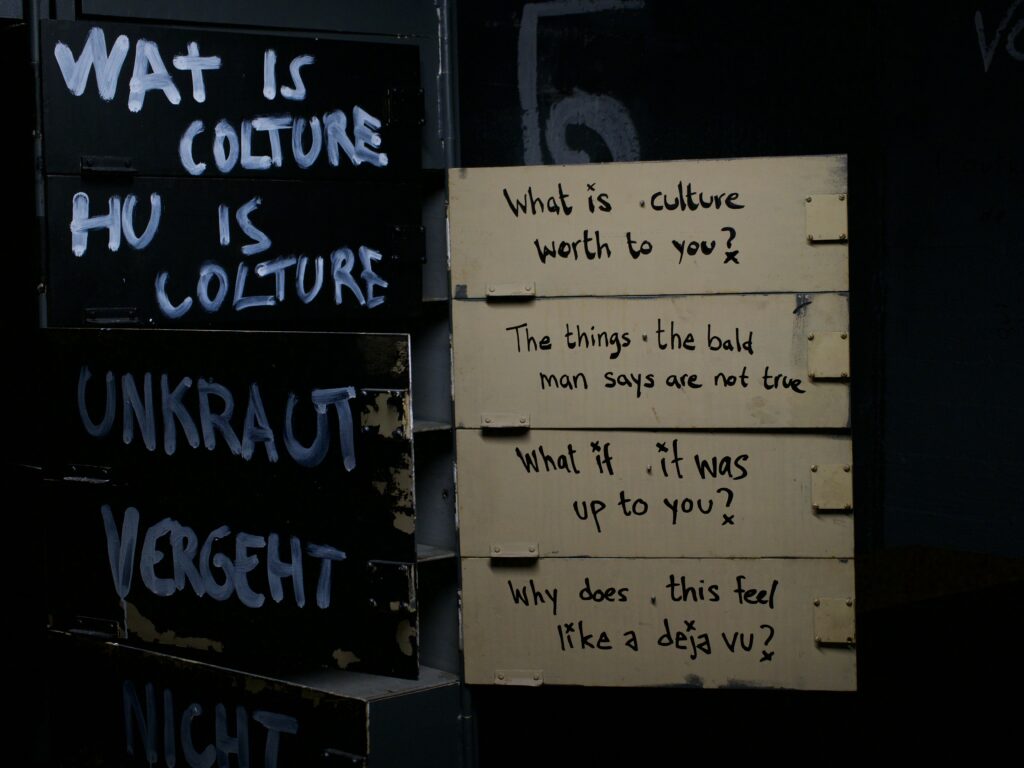 WAT IS
COLTURE
HU IS
COLTURE
UNKRAUT
VERGEHT
NICHT
What is culture
worth to you?
The things the bald
man says are not true
What if it was
up to you?
Why does this feel
like a deja vu?